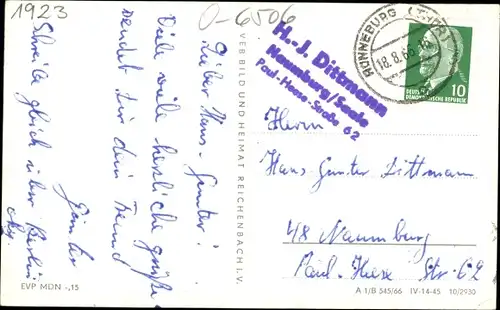 1923
O-6506
Lieber Hans-Günter!
Viele viele herzliche Grüße
sendet dir dein Freund
Günter
Schreibe gleich über Berlin
okay.
VEB BILD UND HEIMAT REICHENBACH I. V.
H.-J. Dittmann
Naumburg/Saale
Paul-Heese-Straße 62
RONNEBURG (THÜR)
18.8.66
10
DEUTSCHE
DEMOKRATISCHE REPUBLIK
Herrn
Hans Günter Dittmann
48 Naumburg
Paul-Heese Str 62
EVP MDN -,15
A 1/B 545/66 IV-14-45 10/2930